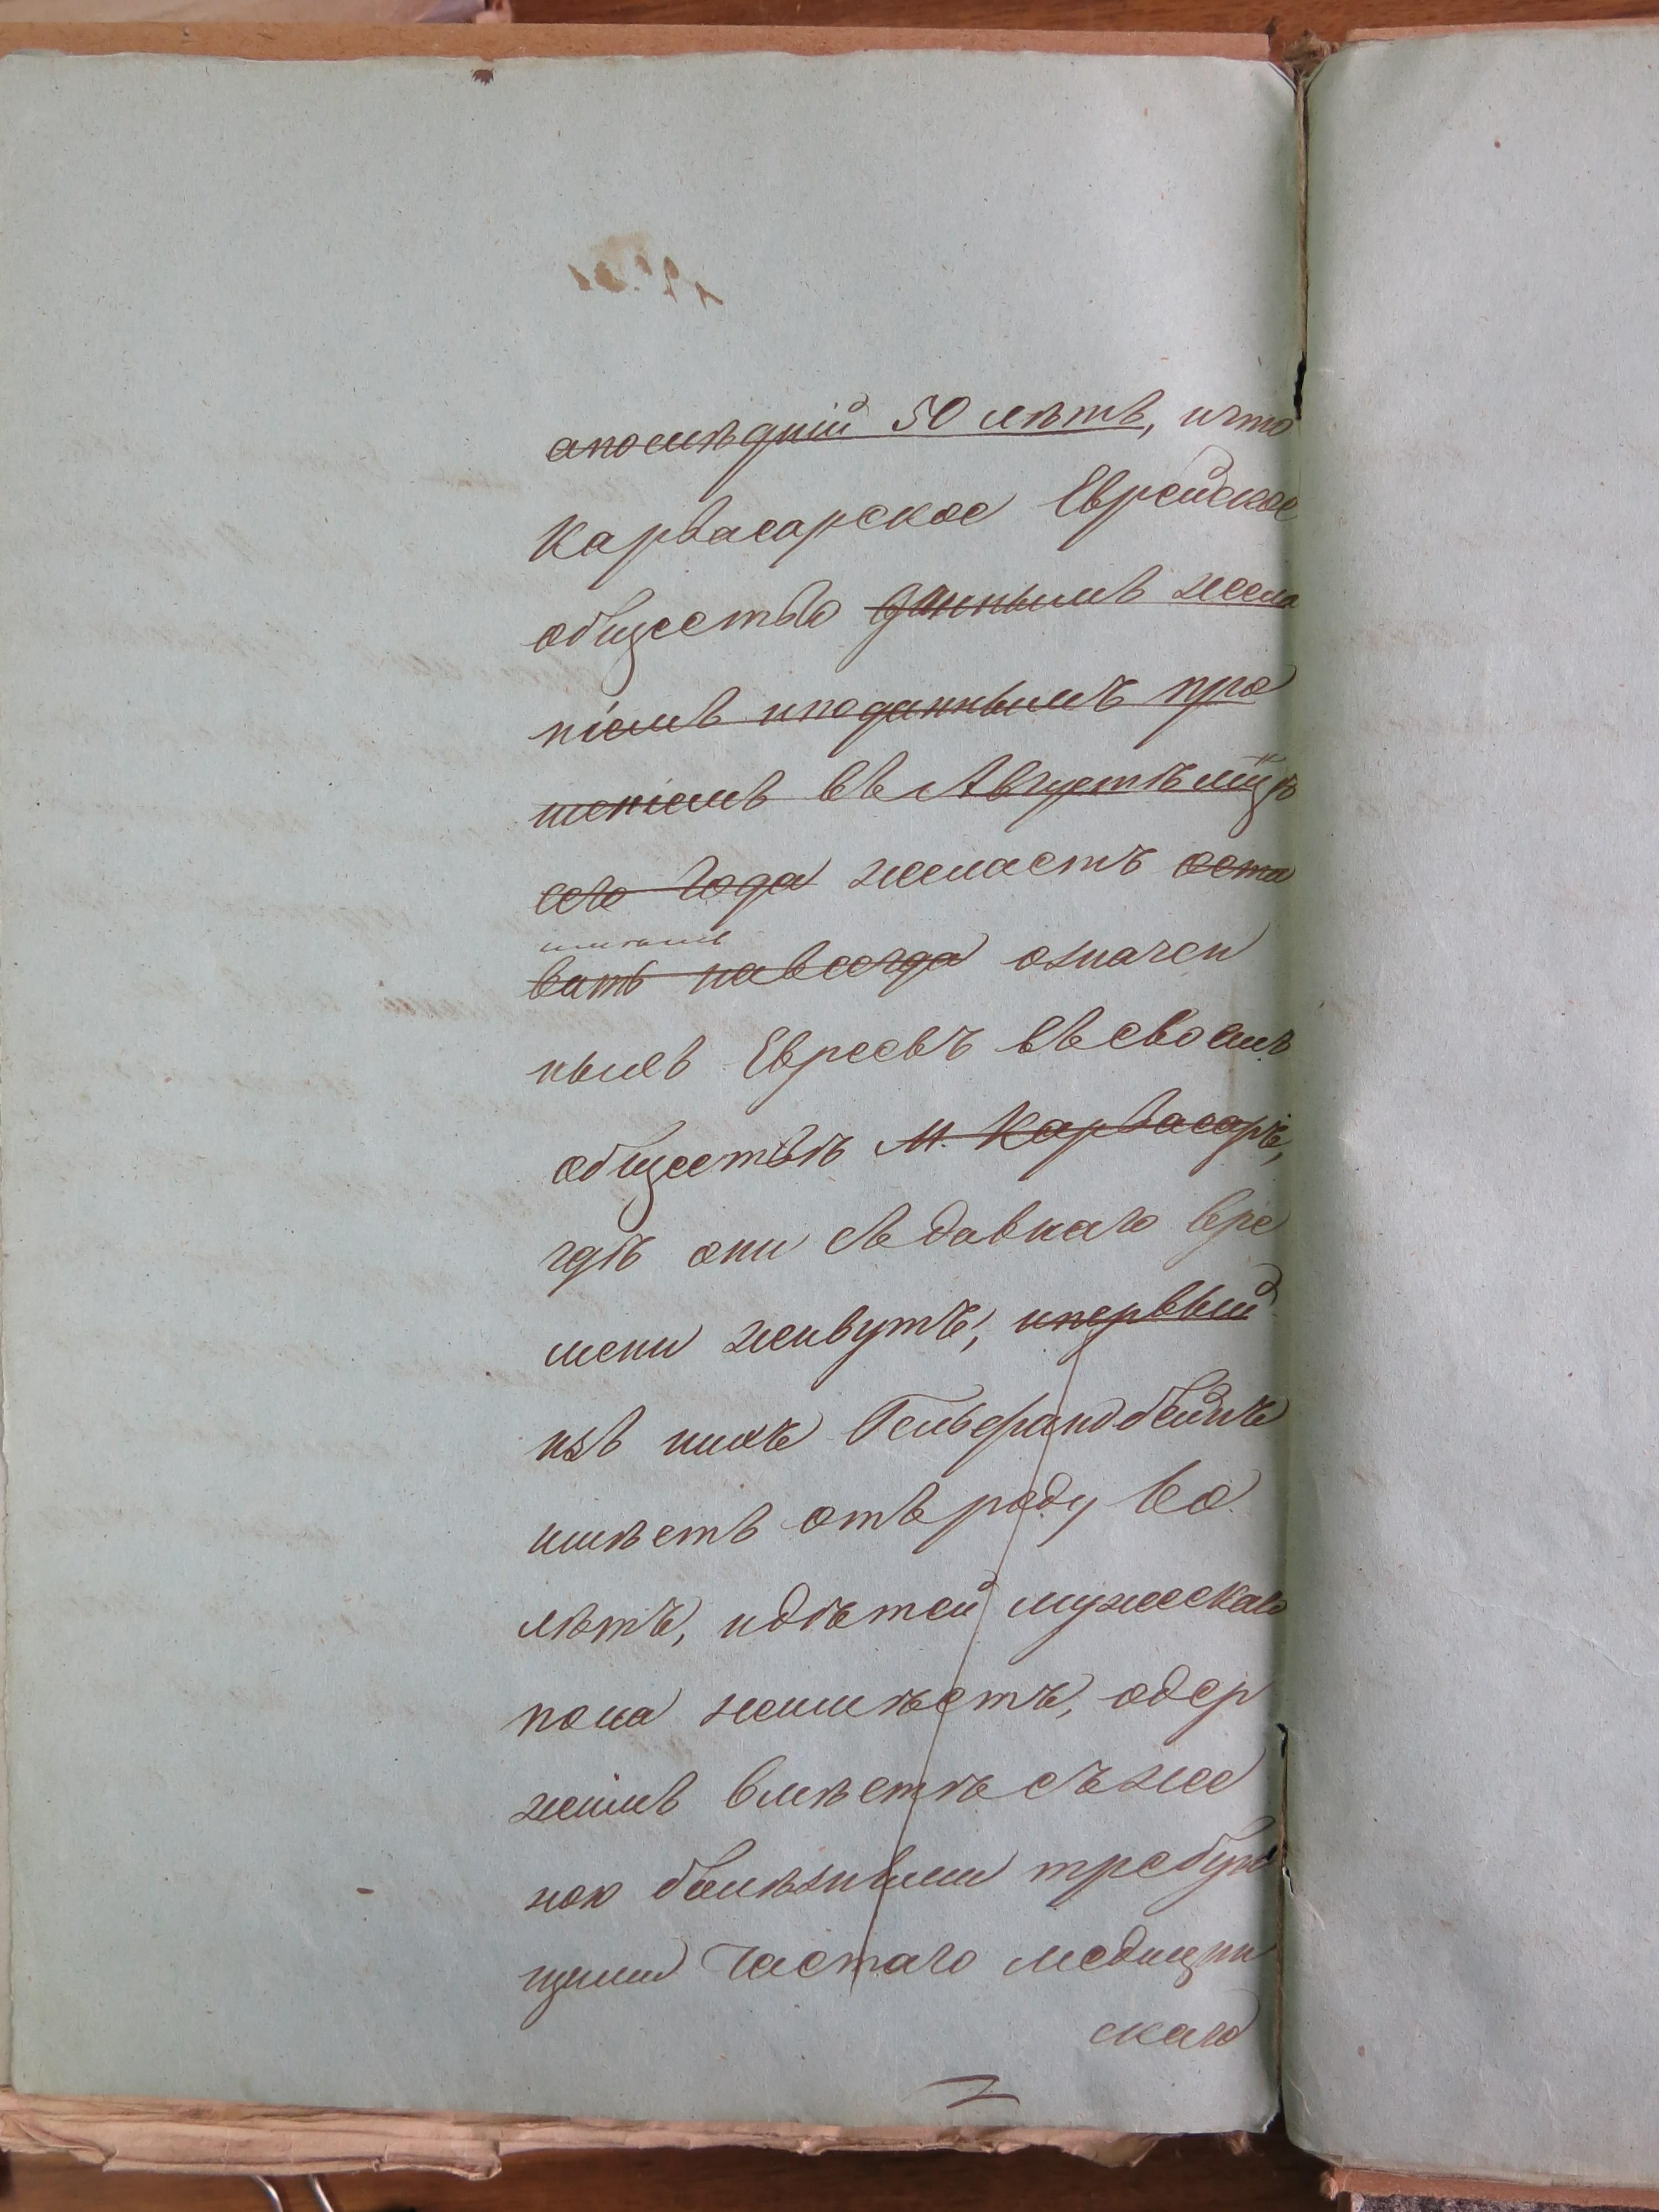 апослѣдній 50 лѣтъ, ичто
Карвасарское Еврейское
общество даннымъ жела
ніемъ иподаннымъ про
шеніемъ въ Августѣ мцѣ
сего года желаетъ оста
вить навсегда означен
ныхъ Евреевъ въ своемъ
обществѣ М. Карвасарѣ,
гдѣ они съ давнаго вре
мени живутъ, ипервый
изъ нихъ Гельфандбейнъ
имѣетъ отъ роду 60
лѣтъ, идѣтей мужескаго
пола неимѣетъ, одер
жимъ вмѣстѣ съ же
ною болѣзньми требую
щими частаго медицин
скаго